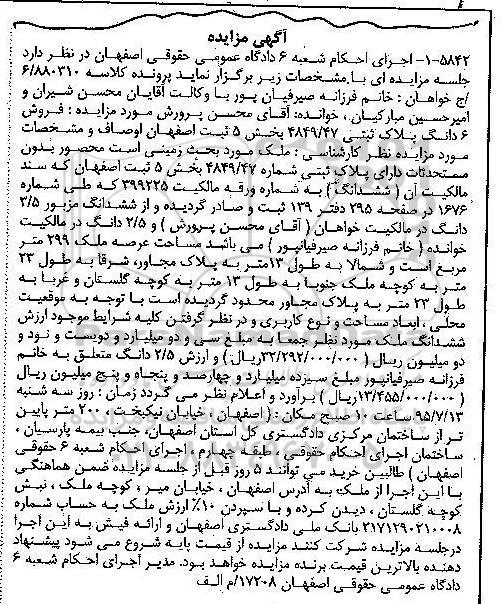 آگهی مزایده
۱-۵۸۴۲- اجرای احکام شعبه ۶ دادگاه عمومی حقوقی اصفهان در نظر دارد
جلسه مزایده ای با مشخصات زیر برگزار نماید پرونده کلاسه ۶/۸۸۰۳۱۰
/ج خواهان : خانم فرزانه صیرفیان پور با وکالت آقایان محسن شیران و
امیرحسین مبارکیان ، خوانده: آقای محسن پرورش مورد مزایده : فروش
۶ دانگ پلاک ثبتی ۴۸۴۹/۴۷ بخش ۵ ثبت اصفهان اوصاف و مشخصات
مورد مزایده نظر کارشناسی : ملک مورد بحث زمینی است محصور بدون
مستحدثات دارای پلاک ثبتی شماره ۴۸۴۹/۴۷ بخش ۵ ثبت اصفهان که سند
مالکیت آن ( ششدانگ ) به شماره ورقه مالکیت ۳۹۹۲۲۵ که طی شماره
۱۶۷۶ در صفحه ۲۹۵ دفتر ۱۳۹ ثبت و صادر گردیده و از ششدانگ مزبور ۳/۵
دانگ در مالکیت خواهان ( آقای محسن پرورش ) و ۲/۵ دانگ در مالکیت
خوانده ( خانم فرزانه صیرفیانپور ) می باشد مساحت عرصه ملک ۲۹۹ متر
مربع است و شمالا به طول ۱۳متر به پلاک مجاور، شرقا به طول ۲۳
متر به کوچه ملک جنوبا به طول ۱۳ متر به کوچه گلستان و غربا به
طول ۲۳ متر به پلاک مجاور محدود گردیده است با توجه به موقعیت
محلی ، ابعاد مساحت و نوع کاربری و در نظر گرفتن کلیه شرایط موجود ارزش
ششدانگ ملک مورد نظر جمعا به مبلغ سی و دو میلیارد و دویست و نود و
دو میلیون ریال ( ۳۲/۲۹۲/۰۰۰/۰۰۰ریال ) و ارزش ۲/۵ دانگ متعلق به خانم
فرزانه صیرفیانپور مبلغ سیزده میلیارد و چهارصد و پنجاه و پنج میلیون ریال
(۱۳/۴۵۵/۰۰۰/۰۰۰ریال ) برآورد و اعلام نظر می گردد زمان : روز سه شنبه
۹۵/۷/۱۳ ساعت ۱۰ صبح مکان : ( اصفهان ، خیابان نیکبخت ، ۲۰۰ متر پایین
تر از ساختمان مرکزی دادگستری کل استان اصفهان، جنب بیمه پارسیان ،
ساختمان اجرای احکام حقوقی ، طبقه چهارم ، اجرای احکام شعبه ۶ حقوقی
اصفهان ) طالبین خرید می توانند ۵ روز قبل از جلسه مزایده ضمن هماهنگی
با این اجرا از ملک به آدرس اصفهان ، خیابان میر ، کوچه ملک ، نبش
کوچه گلستان ، دیدن کرده و با سپردن ۱۰٪ ارزش ملک به حساب شماره
۲۱۷۱۲۹۰۲۱۰۰۰۸ بانک ملی دادگستری اصفهان و ارائه فیش به این اجرا
درجلسه مزایده شرکت کنند مزایده از قیمت پایه شروع می شود پیشنهاد
دهنده بالاترین قیمت برنده مزایده خواهد بود. مدیر اجرای احکام شعبه ۶
دادگاه عمومی حقوقی اصفهان ۱۷۲۰۸/م الف